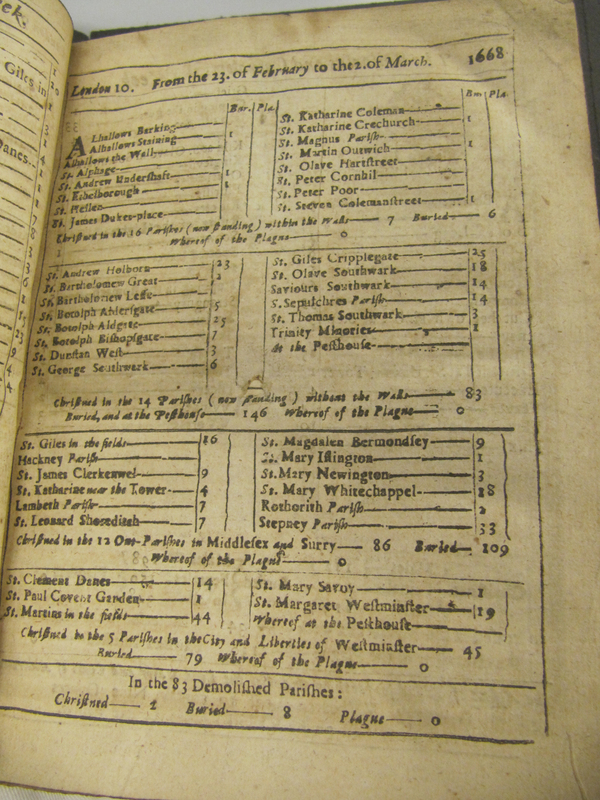 eek.
Giles in
Danes
London 10. From the 23. of February to the 2. of March. 1668
Bur. Pla.
ALhallows Barking
Alhallows Staining 1
Alhallows the Wall
St. Alphage
St. Andrew Undershaft 1
St. Ethelborough 1
St. Hellen
St. James Dukes-place
Bur Pla.
St. Katharine Coleman
St. Katharine Creechurch 1
St. Magnus Parish
St. Martin Outwich 1
St. Olave Hartstreet
St. Peter Cornhil
St. Peter Poor
St. Steven Colemanstreet 1
Christned in the 16 Parishes (now standing) within the Walls 7 Buried 6
Whereof of the Plague 0
St. Andrew Holborn 23
St. Bartholomew Great 2
St. Bartholomew Lesse
St. Botolph Aldersgate 5
St. Botolph Aldgate 25
St. Botolph Bishopsgate 7
St. Dunstan West 3
St. George Southwark 6
St. Giles Cripplegate 25
St. Olave Southwark 18
Saviours Southwark 14
S. Sepulchres Parish 14
St. Thomas Southwark 3
Trinity Minories 1
At the Pesthouse
Christned in the 14 Parishes (now standing) without the Walls 83
Buried, and at the Pesthouse 146 Whereof of the Plague 0
St. Giles in the fields 16
Hackney Parish
St. James Clerkenwel 9
St. Katharine near the Tower 4
Lambeth Parish 7
St. Leonard Shoreditch 7
St. Magdalen Bermondsey 9
St. Mary Islington 1
St. Mary Newington 3
St. Mary Whitechappel 18
Rothorith Parish 2
Stepney Parish 33
Christned in the 12 Out-Parishes in Middlesex and Surry 86 Buried 109
Whereof of the Plague 0
St. Clement Danes 14
St. Paul Covent Garden 1
St. Martins in the fields 44
St. Mary Savoy 1
St. Margaret Westminster 19
Whereof at the Pesthouse
Christned in the 5 Parishes in the City and Liberties of Westminster 45
Buried 79 Whereof of the Plague 0
In the 83 Demolished Parishes:
Christned 2 Buried 8 Plague 0